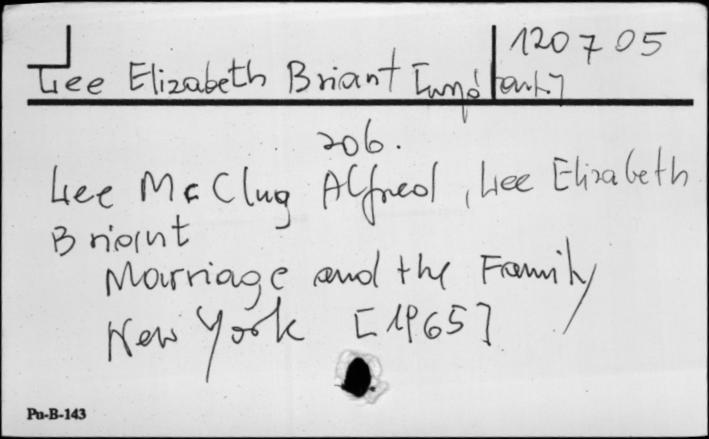 120705
Lee Elizabeth Briant
206.
Lee Mc Clug Alfred, Lee Elizabeth
Briant
Marriage and the Family
New York [1965]
Pu-B-143